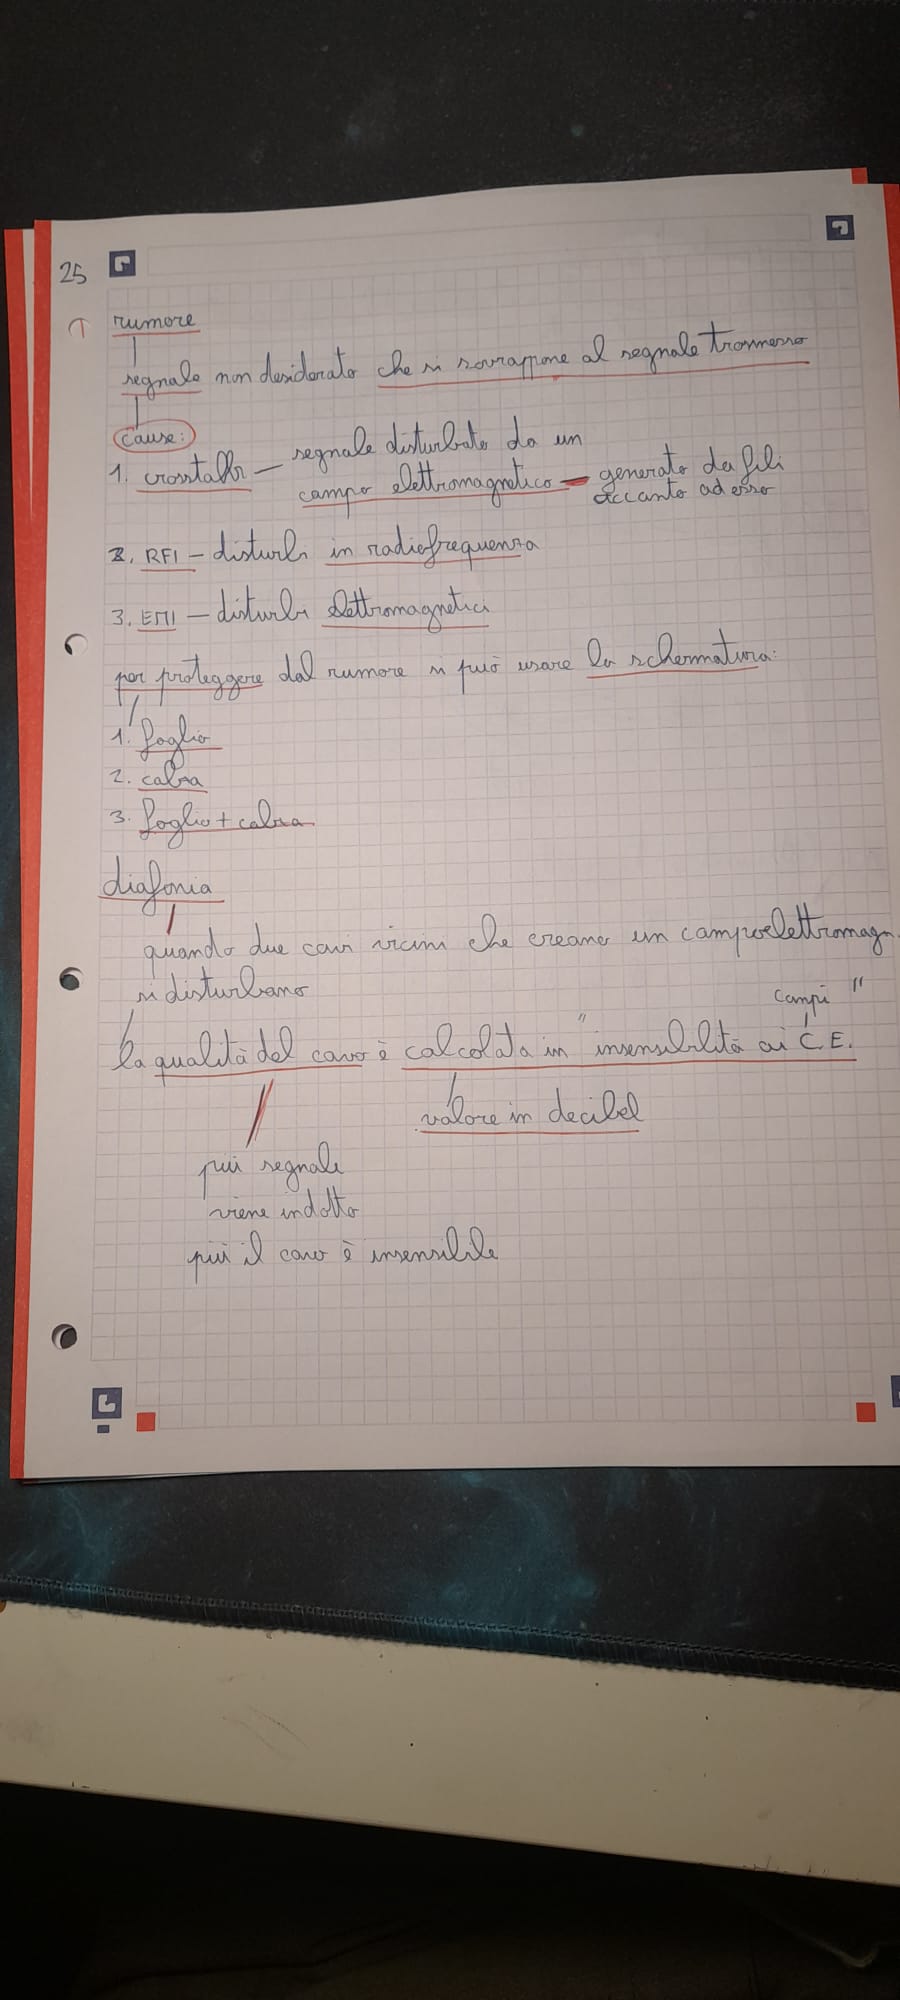 25
T rumore
segnale non desiderato che si sovrappone al segnale trasmesso
cause:
1. crosstalk — segnale disturbato da un
campo elettromagnetico — generato da fili
accanto ad esso
2. RFI — disturbi in radiofrequenza
3. EMI — disturbi elettromagnetici
per proteggere dal rumore si può usare la schermatura:
1. foglio
2. calza
3. foglio + calza
diafonia
quando due cavi vicini che creano un campo elettromagn.
si disturbano
campi "
la qualità del cavo è calcolata in " insensibilità ai C.E.
valore in decibel
più segnale
viene indotto
più il cavo è insensibile